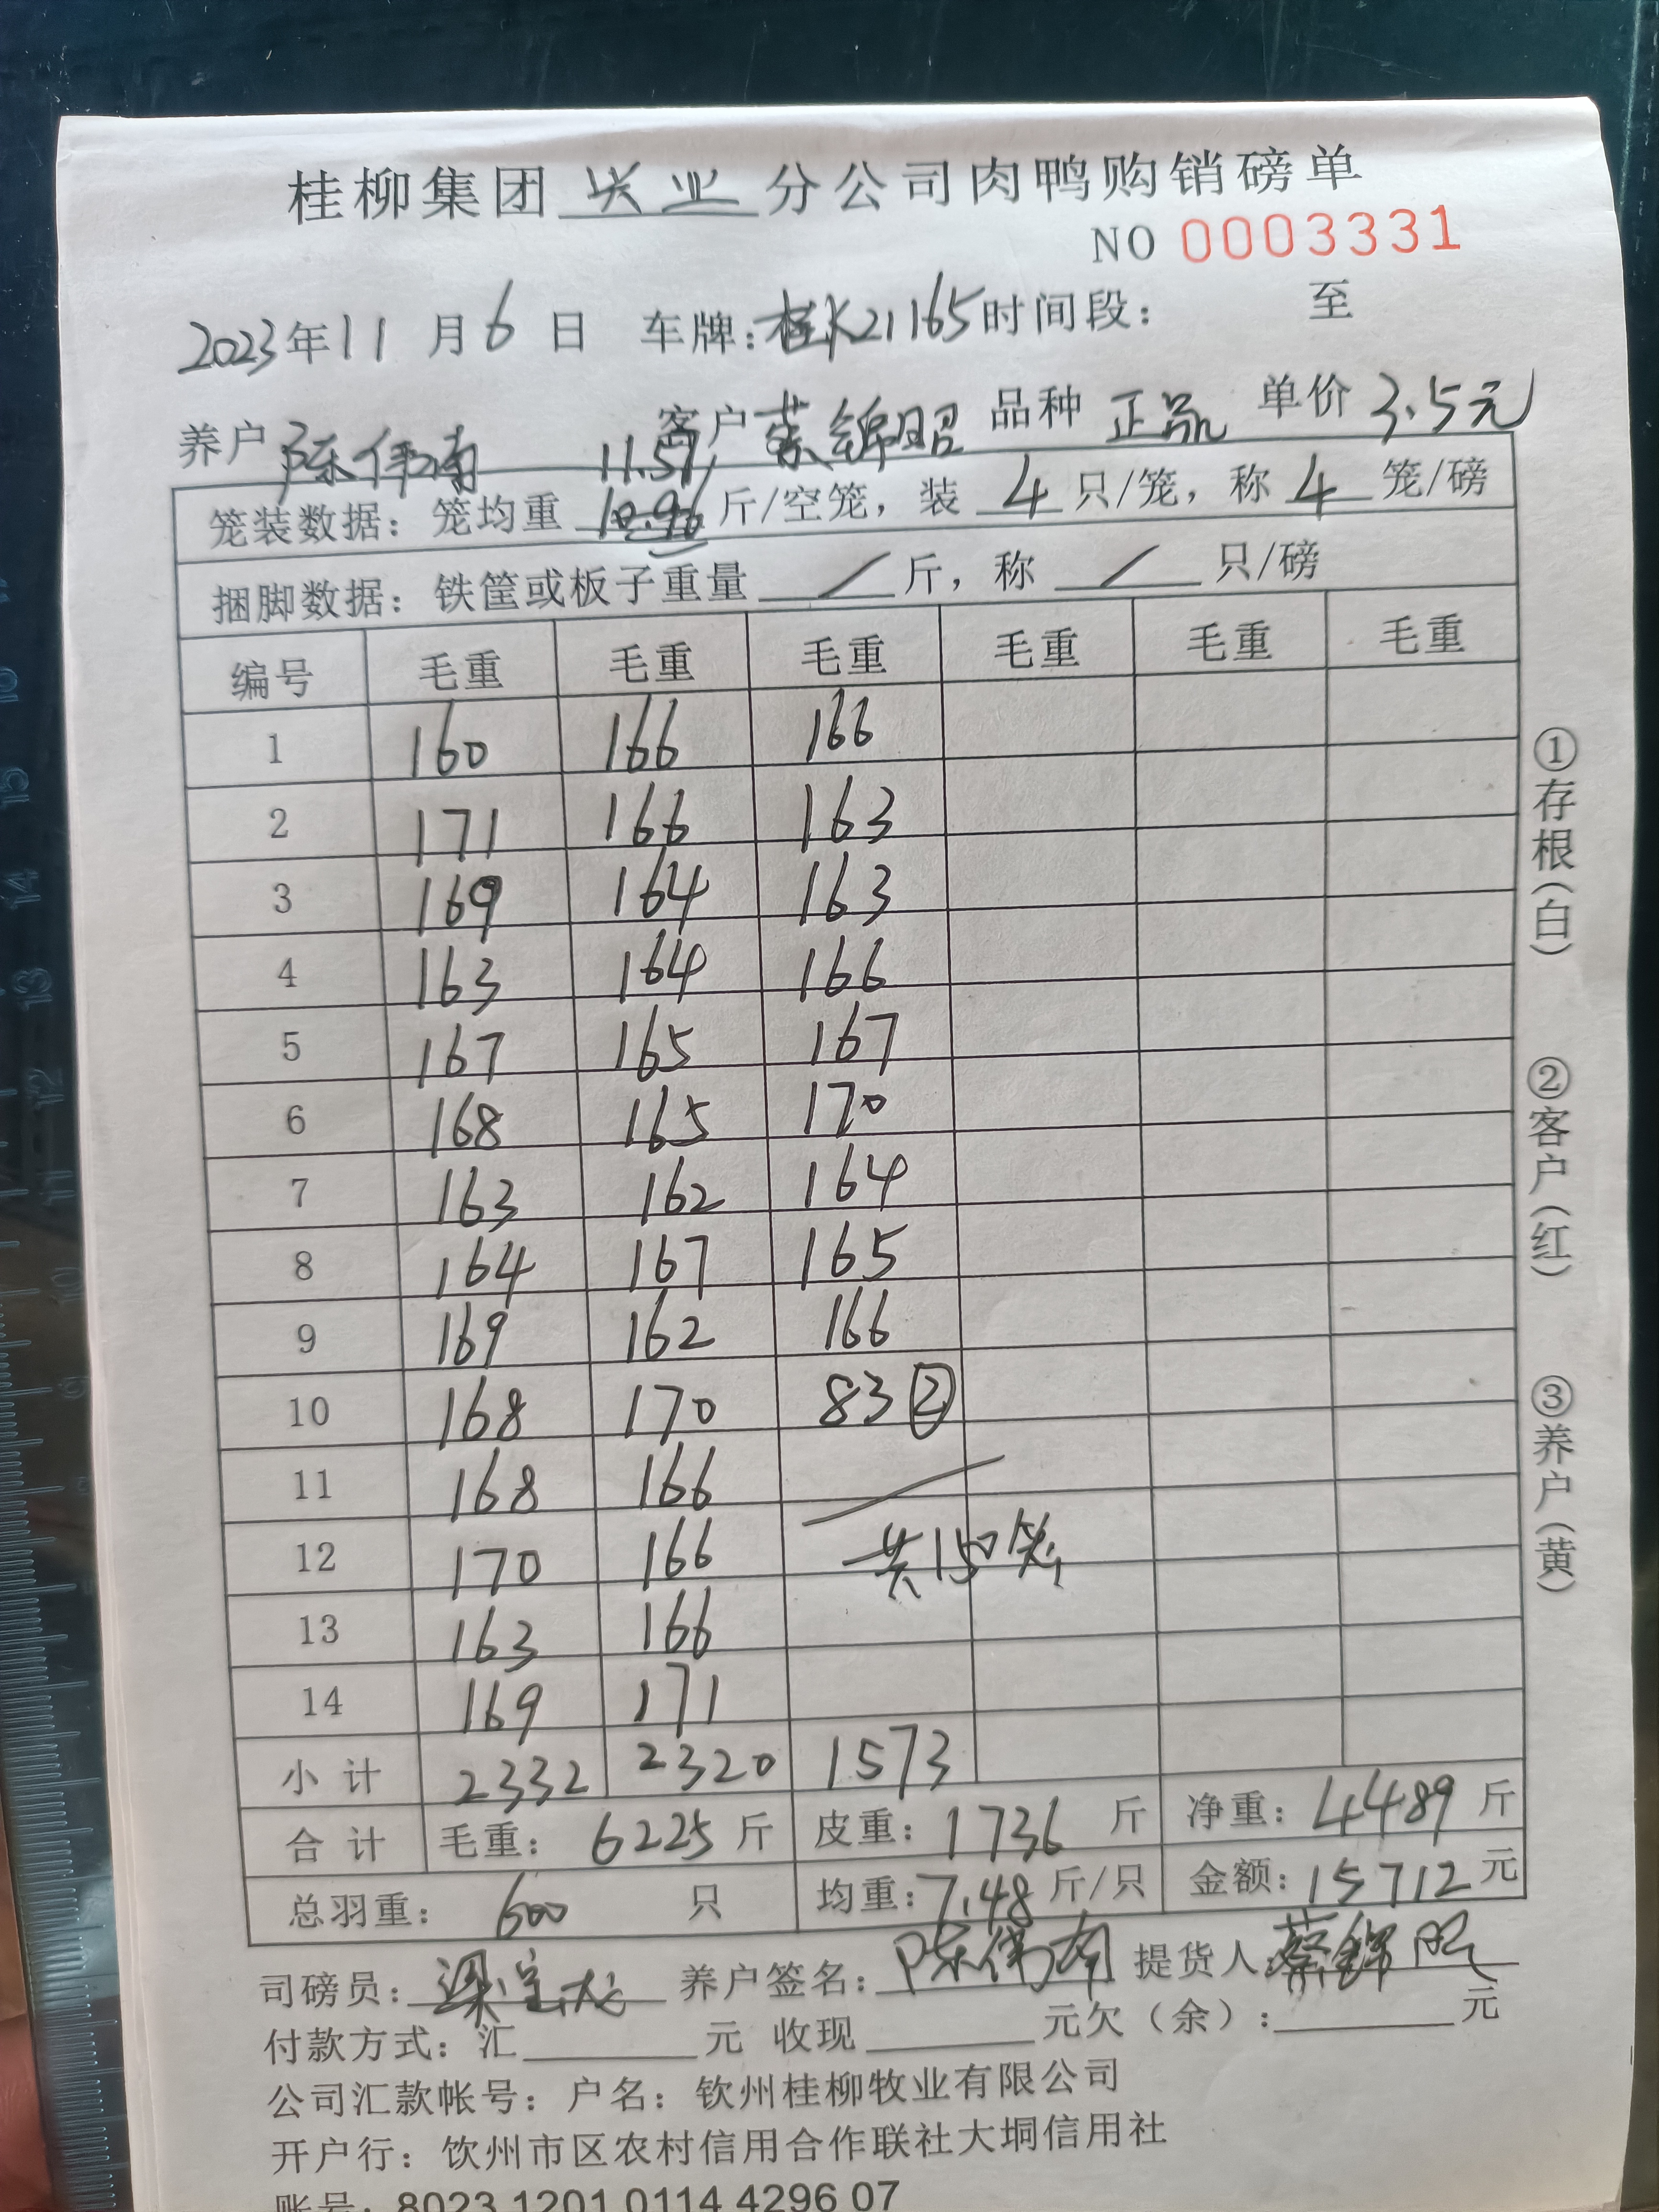 桂柳集团 兴业 分公司肉鸭购销磅单
NO 0003331
2023年11月6日 车牌:桂K21165时间段: 至
养户 陈伟南 客户 蔡锦昭 品种 正品 单价 3.5元
11.57
笼装数据: 笼均重 10.96 斤/空笼, 装 4 只/笼, 称 4 笼/磅
捆脚数据: 铁筐或板子重量 / 斤, 称 / 只/磅
编号 毛重 毛重 毛重 毛重 毛重 毛重
1 160 166 166
2 171 166 163
3 169 164 163
4 163 164 166
5 167 165 167
6 168 165 170
7 163 162 164
8 164 167 165
9 169 162 166
10 168 170 83 ②
11 168 166
12 170 166 共150笼
13 163 166
14 169 171
小计 2332 2320 1573
合计 毛重: 6225 斤 皮重: 1736 斤 净重: 4489 斤
总羽重: 600 只 均重: 7.48 斤/只 金额: 15712 元
①存根(白) ②客户(红) ③养户(黄)
司磅员: 梁宝龙 养户签名: 陈伟南 提货人 蔡锦昭
付款方式: 汇 元 收现 元欠(余): 元
公司汇款帐号: 户名: 钦州桂柳牧业有限公司
开户行: 钦州市区农村信用合作联社大垌信用社
账号: 8023 1201 0114 4296 07